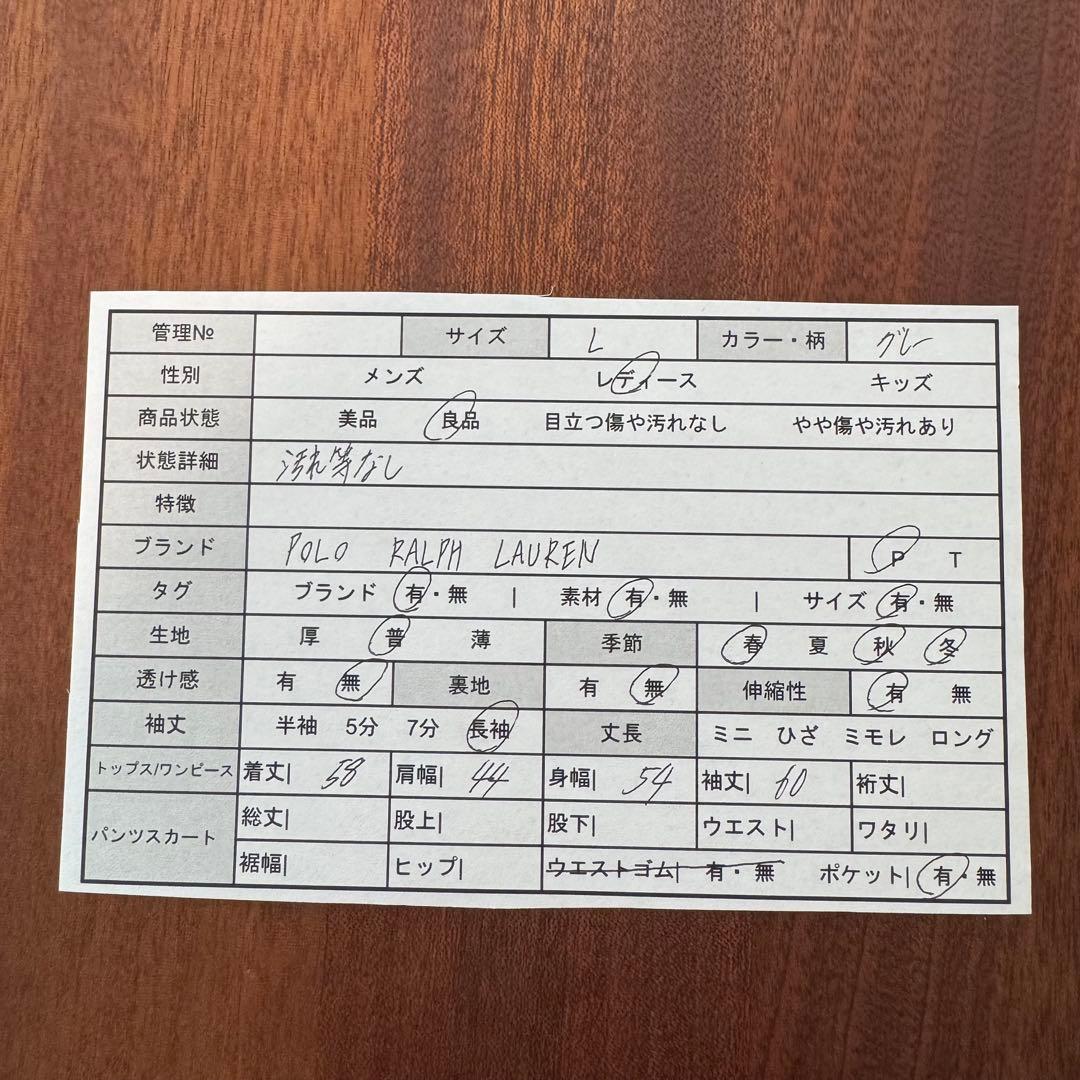 管理№ サイズ L カラー・柄 グレー
性別 メンズ レディース キッズ
商品状態 美品 良品 目立つ傷や汚れなし やや傷や汚れあり
状態詳細 汚れ等なし
特徴
ブランド POLO RALPH LAUREN P T
タグ ブランド 有・無 | 素材 有・無 | サイズ 有・無
生地 厚 普 薄 季節 春 夏 秋 冬
透け感 有 無 裏地 有 無 伸縮性 有 無
袖丈 半袖 5分 7分 長袖 丈長 ミニ ひざ ミモレ ロング
トップス/ワンピース 着丈| 58 肩幅| 44 身幅| 54 袖丈| 60 裄丈|
パンツスカート 総丈| 股上| 股下| ウエスト| ワタリ|
裾幅| ヒップ| ウエストゴム| 有・無 ポケット| 有・無